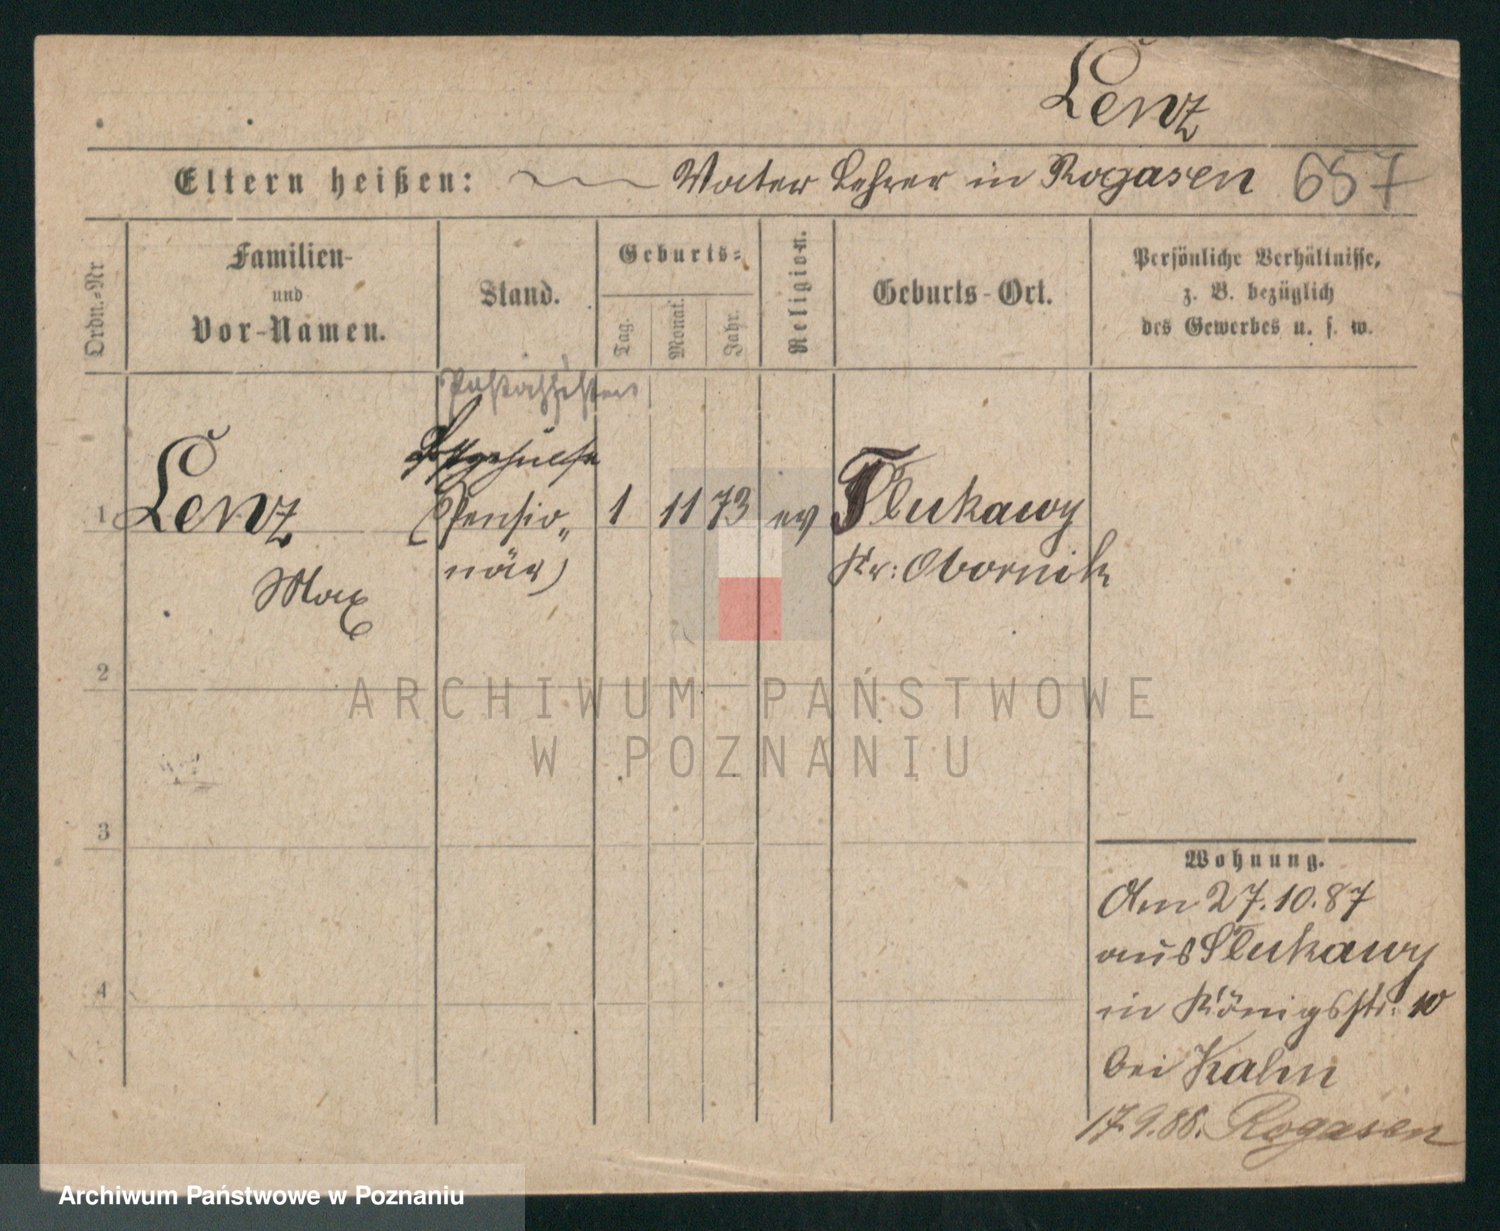 Lenz
Eltern heißen: Vater Lehrer in Rogasen 657
Ordn.-Nr
Familien-
und
Vor-Namen.
Stand.
Geburts-
Tag.
Monat.
Jahr.
Religion.
Geburts-Ort.
Persönliche Verhältnisse,
z. B. bezüglich
des Gewerbes u. s. w.
Postassistent
Postgehülfe
1 Lenz (Pensio- 1 11 73 ev Slukawy
när) Kr: Obornik
Max
2
3
4
Wohnung.
Am 27.10.87
aus Slukawy
in Königsstr. 10
bei Kahn
17.9.88. Rogasen
ARCHIWUM PAŃSTWOWE
W POZNANIU
Archiwum Państwowe w Poznaniu